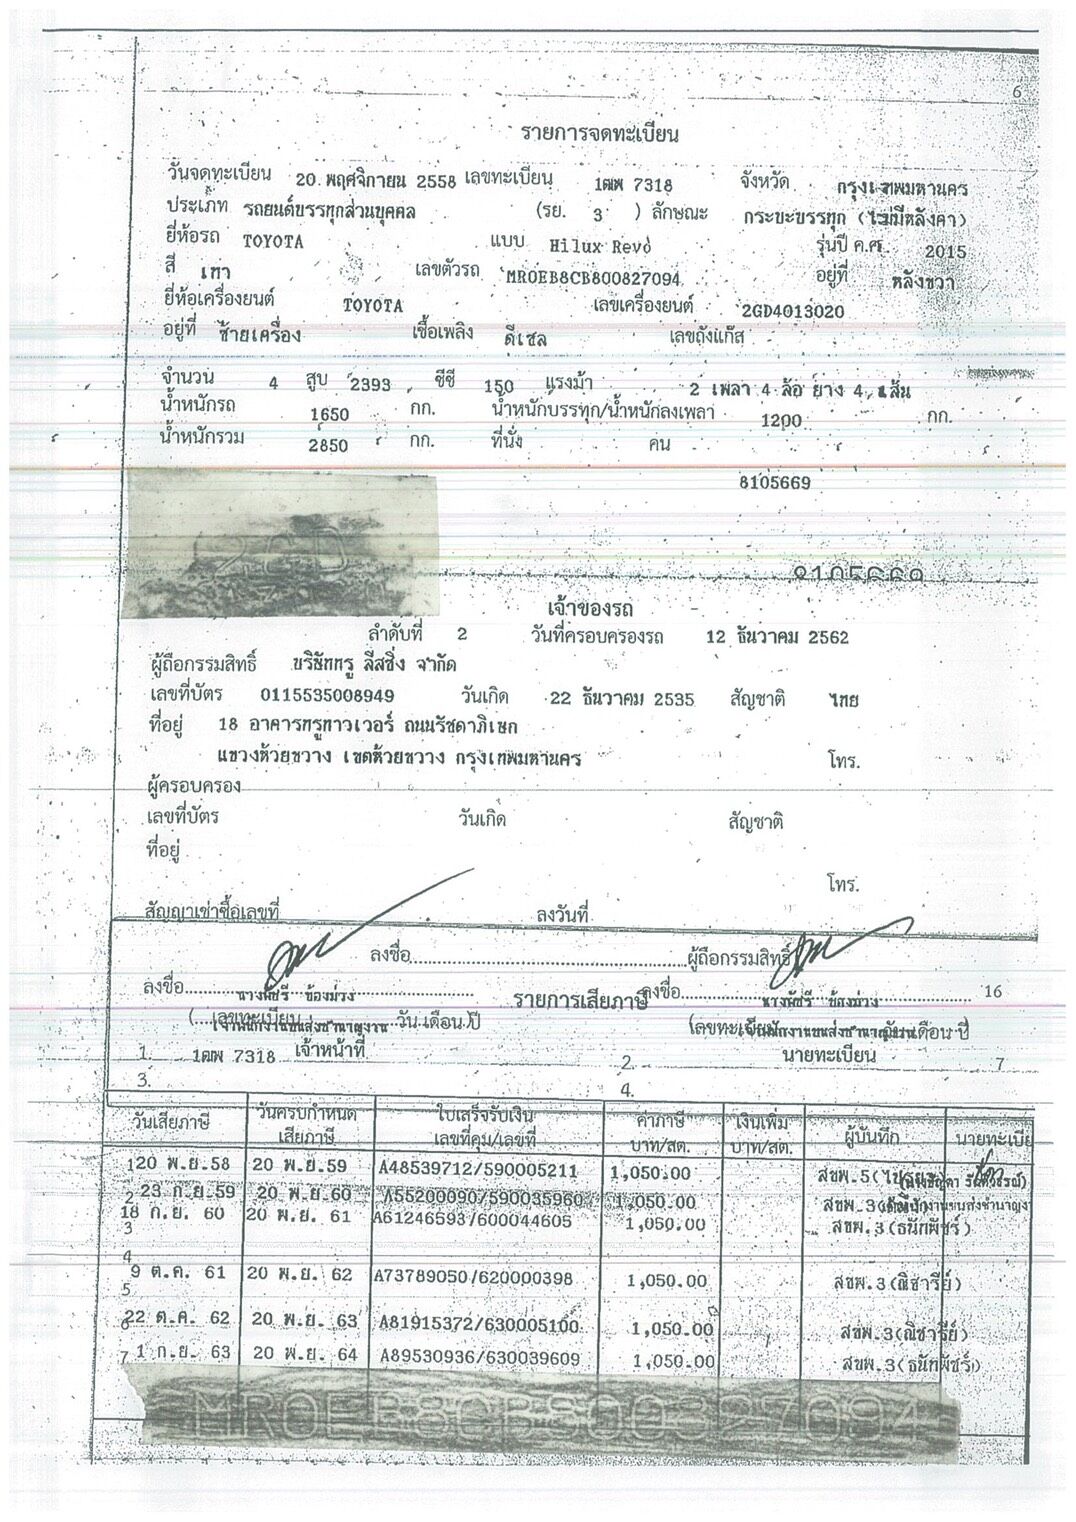 6
รายการจดทะเบียน
วันจดทะเบียน 20 พฤศจิกายน 2558 เลขทะเบียน 1ฒพ 7318 จังหวัด กรุงเทพมหานคร
ประเภท รถยนต์บรรทุกส่วนบุคคล (รย. 3 ) ลักษณะ กระบะบรรทุก (ไม่มีหลังคา)
ยี่ห้อรถ TOYOTA แบบ Hilux Revo รุ่นปี ค.ศ. 2015
สี เทา เลขตัวรถ MR0EB8CB800827094 อยู่ที่ หลังขวา
ยี่ห้อเครื่องยนต์ TOYOTA เลขเครื่องยนต์ 2GD4013020
อยู่ที่ ซ้ายเครื่อง เชื้อเพลิง ดีเซล เลขถังแก๊ส
จำนวน 4 สูบ 2393 ซีซี 150 แรงม้า 2 เพลา 4 ล้อ ยาง 4 เส้น
น้ำหนักรถ 1650 กก. น้ำหนักบรรทุก/น้ำหนักลงเพลา 1200 กก.
น้ำหนักรวม 2850 กก. ที่นั่ง คน
8105669
2GD
8105669
เจ้าของรถ
ลำดับที่ 2 วันที่ครอบครองรถ 12 ธันวาคม 2562
ผู้ถือกรรมสิทธิ์ บริษัททรู ลีสซิ่ง จำกัด
เลขที่บัตร 0115535008949 วันเกิด 22 ธันวาคม 2535 สัญชาติ ไทย
ที่อยู่ 18 อาคารทรูทาวเวอร์ ถนนรัชดาภิเษก
แขวงห้วยขวาง เขตห้วยขวาง กรุงเทพมหานคร โทร.
ผู้ครอบครอง
เลขที่บัตร วันเกิด สัญชาติ
ที่อยู่
โทร.
สัญญาเช่าซื้อเลขที่ ลงวันที่
ลงชื่อ ผู้ถือกรรมสิทธิ์
ลงชื่อ นางพัชรี ซ้องม่วง รายการเสียภาษี ลงชื่อ นางพัชรี ซ้องม่วง 16
(เลขทะเบียน วัน เดือน ปี (เลขทะเบียน วัน เดือน ปี)
1. 1ฒพ 7318 เจ้าหน้าที่ 2. นายทะเบียน 7
3. 4.
วันเสียภาษี วันครบกำหนดเสียภาษี ใบเสร็จรับเงิน เลขที่คุม/เลขที่ ค่าภาษี บาท/สต. เงินเพิ่ม บาท/สต. ผู้บันทึก นายทะเบีย
1 20 พ.ย.58 20 พ.ย.59 A48539712/590005211 1,050.00 สขพ.5
2 23 ก.ย.59 20 พ.ย.60 A55200090/590035960 1,050.00 สขพ.3
3 18 ก.ย. 60 20 พ.ย. 61 A61246593/600044605 1,050.00 สขพ.3(ธนักพัชร์)
4
5 9 ต.ค. 61 20 พ.ย. 62 A73789050/620000398 1,050.00 สขพ.3(ณิชารีย์)
6 22 ต.ค. 62 20 พ.ย. 63 A81915372/630005100 1,050.00 สขพ.3(ณิชารีย์)
7 1 ก.ย. 63 20 พ.ย. 64 A89530936/630039609 1,050.00 สขพ.3(ธนักพัชร์)
MR0EB8CB800827094